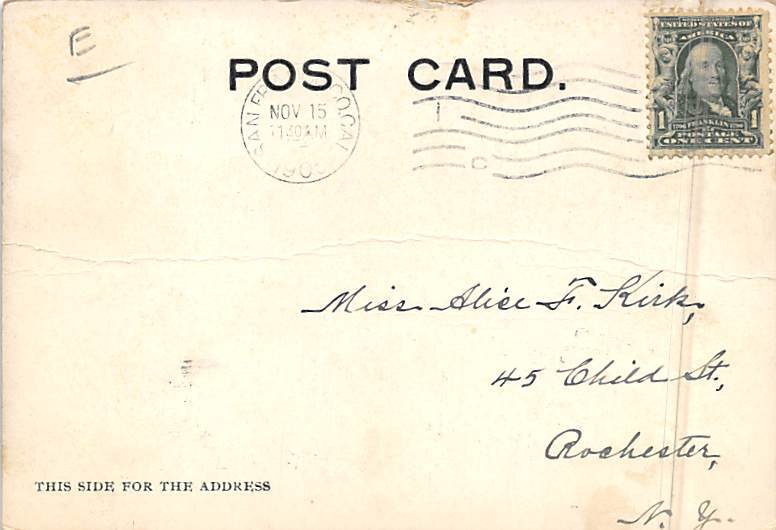 E
POST CARD.
SAN FR CO, CAL
NOV 15
11 30 AM
190
UNITED STATES OF
AMERICA
1 1790 FRANKLIN 1790 1
POSTAGE
ONE CENT
C
Miss Alice F. Kirk,
45 Child St.,
Rochester,
N. Y.
THIS SIDE FOR THE ADDRESS